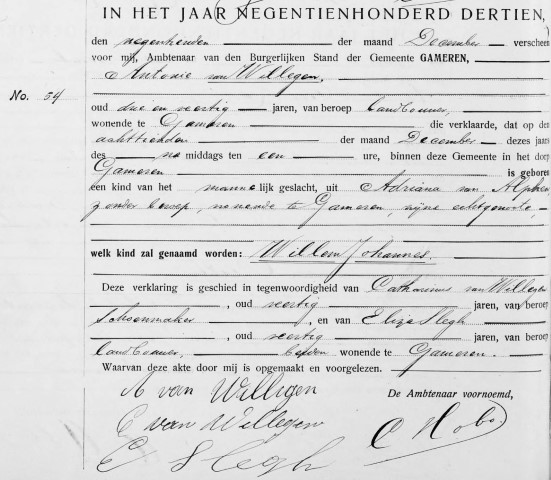 IN HET JAAR NEGENTIENHONDERD DERTIEN,
den negentienden der maand December verscheen
voor mij, Ambtenaar van den Burgerlijken Stand der Gemeente GAMEREN,
Antonie van Willegen,
No. 54
oud drie en veertig jaren, van beroep landbouwer,
wonende te Gameren die verklaarde, dat op den
achttienden der maand December dezes jaars
des na middags ten een ure, binnen deze Gemeente in het dorp
Gameren is geboren
een kind van het manne lijk geslacht, uit Adriana van Alphen,
zonder beroep, wonende te Gameren, zijne echtgenoote,
welk kind zal genaamd worden: Willem Johannes.
Deze verklaring is geschied in tegenwoordigheid van Catharinus van Willegen
, oud veertig jaren, van beroep
Schoenmaker , en van Eliza Slegh
, oud veertig jaren, van beroep
landbouwer, beiden wonende te Gameren.
Waarvan deze akte door mij is opgemaakt en voorgelezen.
A van Willigen
De Ambtenaar voornoemd,
C van Willegen
C Hobo
E Slegh